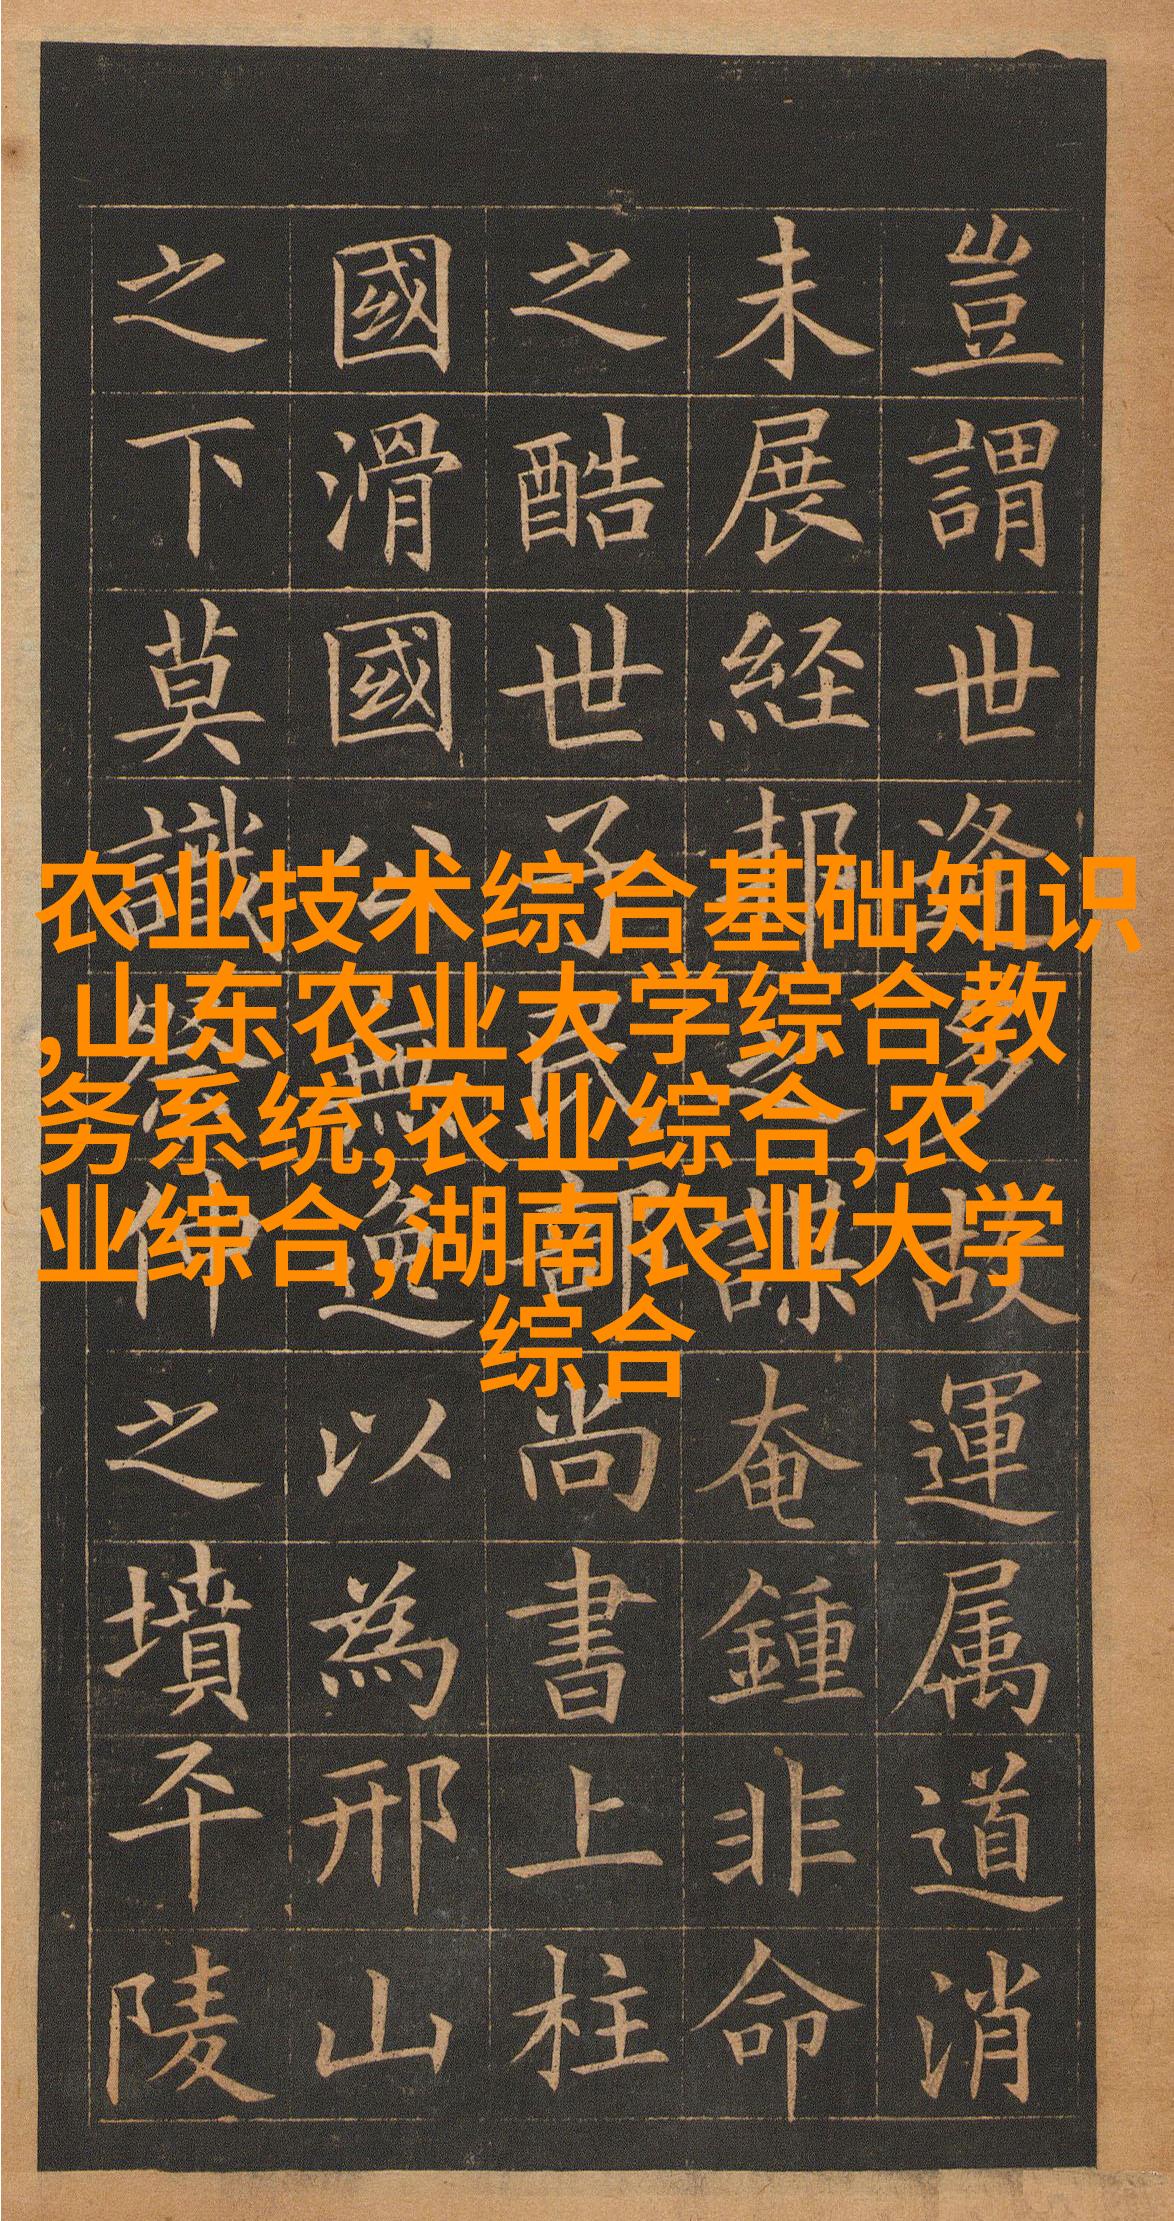 农业技术综合基础知识
,山东农业大学综合教
务系统,农业综合,农
业综合,湖南农业大学
综合
豈謂世逢多故運属道消
未展経邦之謀奄鍾非命
之酷世子民部尚書上柱
國滑國公無逸以為邢山
之下莫識祭仲之墳平陵